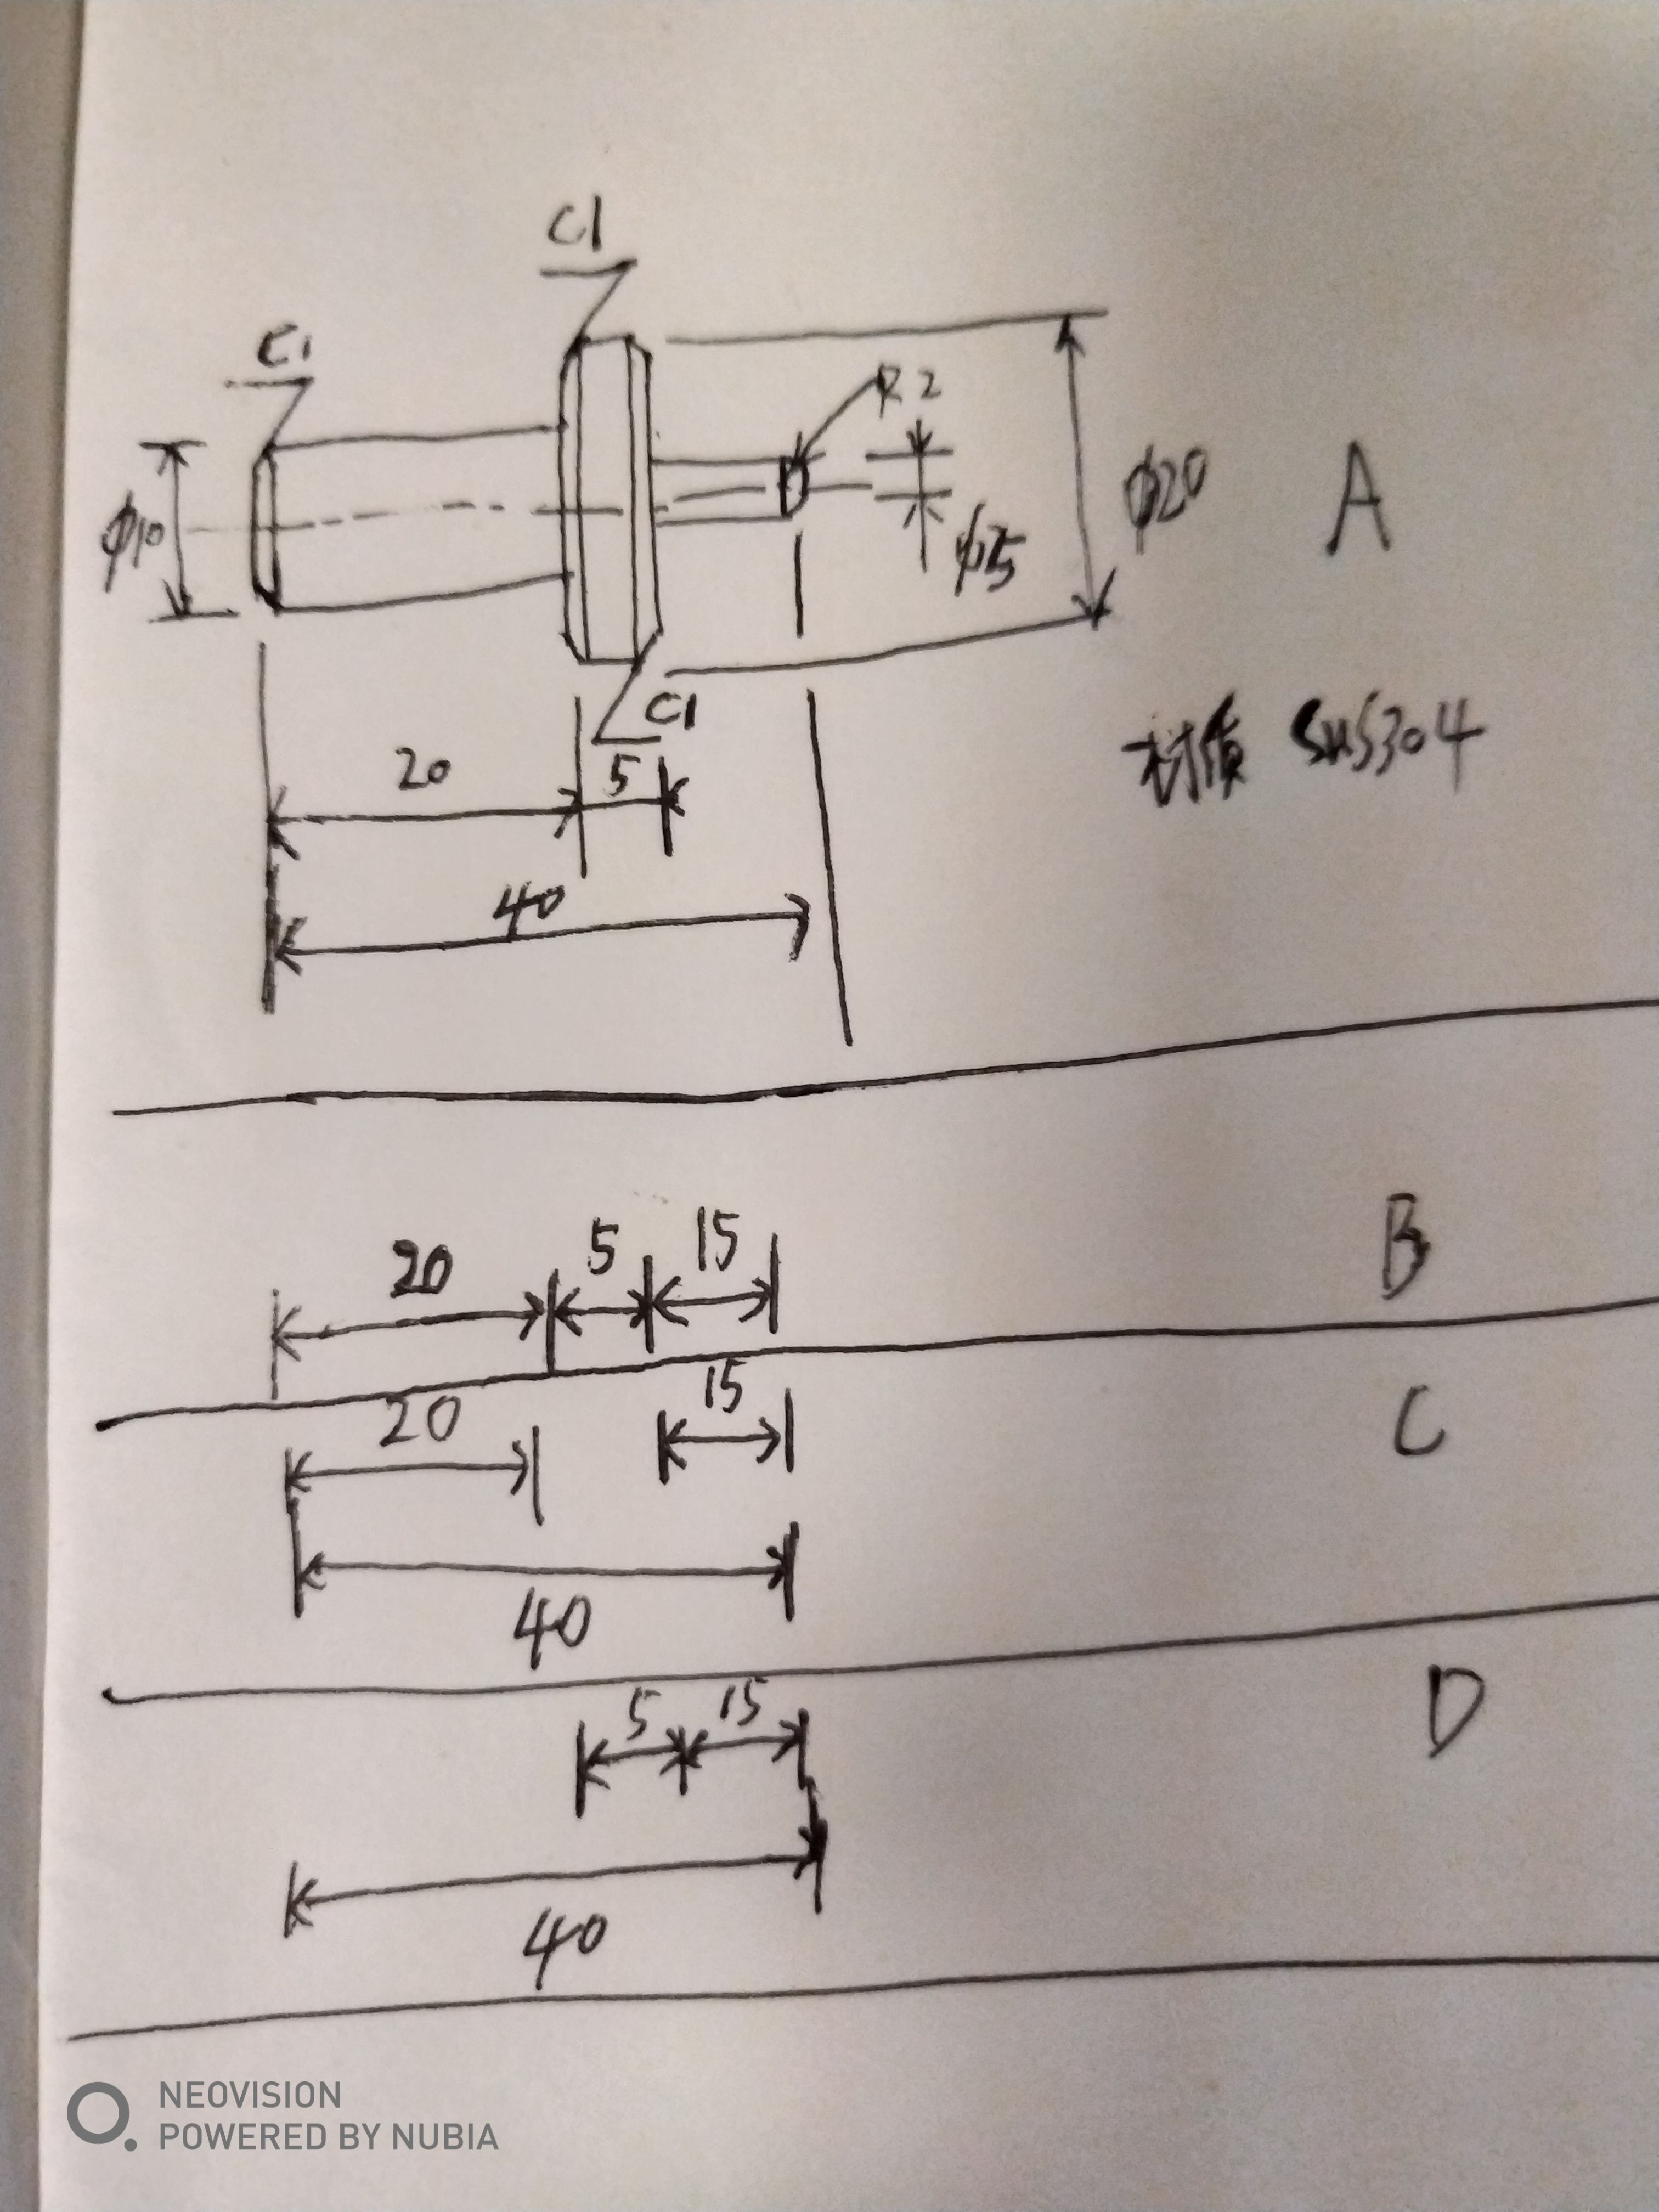 C1
C1
R2
φ10
φ20
A
C1
材质 SUS304
20
5
40
B
20
5
15
C
20
15
40
D
5
15
40
NEOVISION
POWERED BY NUBIA